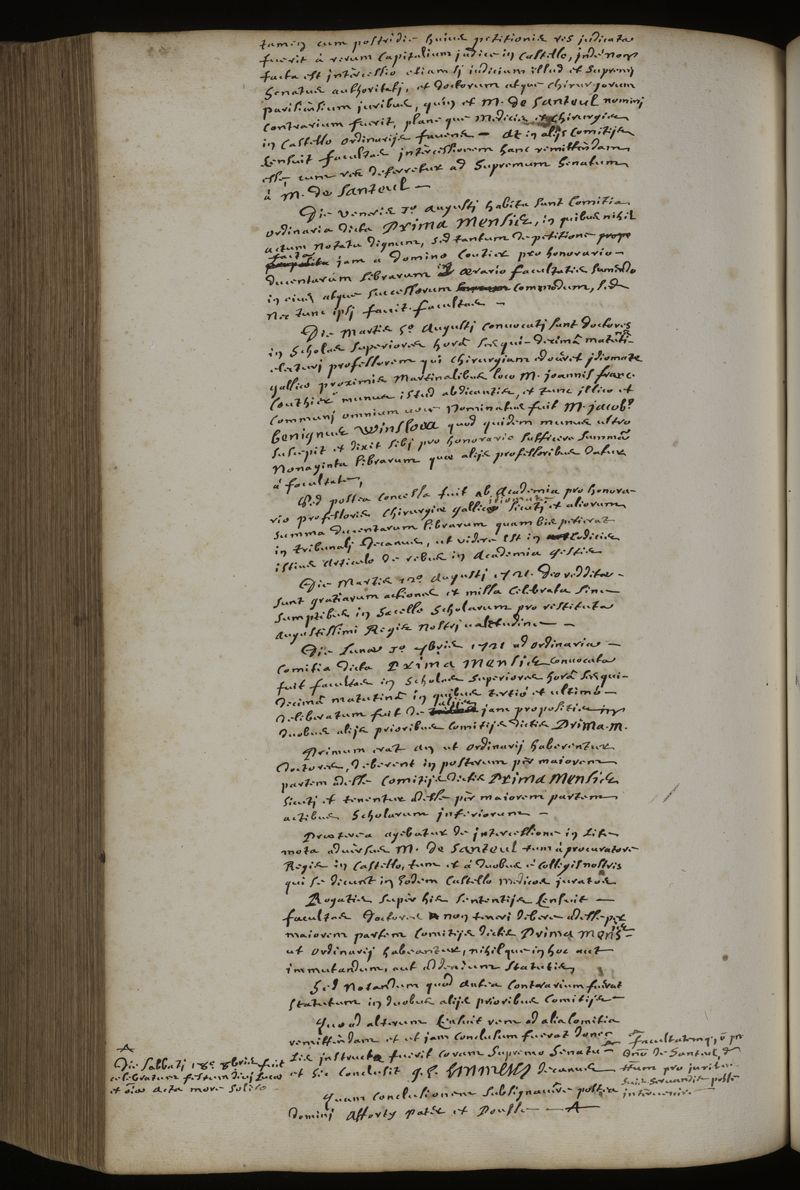 tamen cum postridie huius petitionis res judicata
fuerit à rerum Capitalium judice in Castello, inde non
facta est intercessio etiamsi iudicium illud et Supremi
Senatus authoritati, et doctorum atque chirurgorum
parisiensium juribus, quin et M. de Santeul nomini
contrarium fuerit, plane que Medicis et chirurgis
in Castello ordinarijs favens — at in alijs Comitijs
Censuit facultas intercessionem hanc remittendam
esse cum res deferretur ad Supremum Senatum
à M. de Santeul —
Die Veneris 1º Augusti habita sunt Comitia
ordinaria dicta Prima Mensis, in quibus nihil
actum notatu dignum, sed tantum de petitione
facta jam a domino Coutier pro honorario
ducentarum librarum ex aerario facultatis sumendo
in eius atque successorum commodum, sed
nec tunc ipsi favit facultas —
Die Martis 5º Augusti convocati sunt doctores
in Scholas superiores horâ sesqui-decimâ matuti-
electuri professorem qui chirurgiam doceret idiomate
gallico proximis Martinalibus loco M. joannis franc.
Couthier munus istud abdicantis, et tunc illico et
communi omnium voce nominatus fuit M. jacobº
benignus Winslow quod quidem munus ultro
suscepit et dixit sibi pro honorario sufficere summâ
nonaginta librarum quae alijs professoribus datur
a facultate,
Sed postea concessa fuit ab Academia pro honora-
rio professoris chirurgiae gallico idiomate sicuti et aliorum
summa ducentarum librarum quam bis petierat
in tribunali Decanus, ut videre est in codicis
istius articulo de rebus in Academia gestis
Die Martis 12º Augusti 1721. Deo redditae
sunt gratiarum actiones et missa celebrata sine
sumptibus in Sacello Scholarum pro restituta
Augustissimi Regis nostri valetudine —
Die Lunae 1º 7bris 1721 ad ordinaria —
Comitia dicta Prima Mensis convocata
fuit facultas in Scholas superiores horâ sesqui-
decimâ matutinâ in quibus tertio et ultimo —
deliberatum fuit de alijs jam propositis in
duobus alijs prioribus comitijs dictis Prima. M.
Primum erat an ut ordinarij haberentur
doctores, deberent in posterum per maiorem
partem adesse Comitijs dictis Prima Mensis
sicuti et tenentur adesse per maiorem partem
actibus Scholarum inferiorum —
Praeterea agebatur de intercessione in lite
mota adversus M. de Santeul tum a procuratore
Regis in Castello, tum et à duobus è collegis nostris
qui se dicunt in eodem Castello medicos juratos
Rogatis super his sententijs Censuit —
facultas doctores non teneri debere adesse per
maiorem partem Comitijs dictis Prima Mensis
ut ordinarij habeantur, nihil que in hoc aut
immutandum, aut addendum statutis,
Sed notandum quod antea contrarium fuerat
statutum in duobus alijs prioribus Comitijs —
Quo ad alterum Censuit rem ad alia Comitia
remittendam et ut jam conclusum fuerat donec
Lis instructa fuerit coram Supremo Senatu
et sic conclusit G. E. Emmerez decanus
Quam conclusionem subsignavere postea
domini Afforty pater et Doulse — A
A
Die Sabbati 18º 8bris fuit
celebratum festum divi Lucae
et oia acta more solito
facultatemque
dnû de Santeul
pro juribus
suis servandis posse
intervenire.